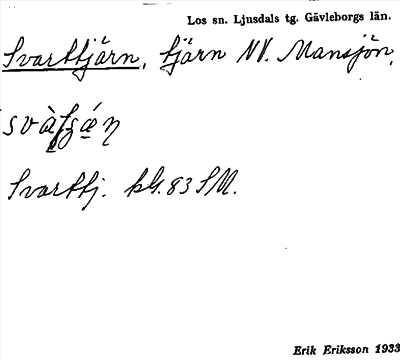 Los sn. Ljusdals tg. Gävleborgs län.
Svarttjärn, tjärn NV. Mansjön,
Svarttj. bl. 83 SM.
Erik Eriksson 1933